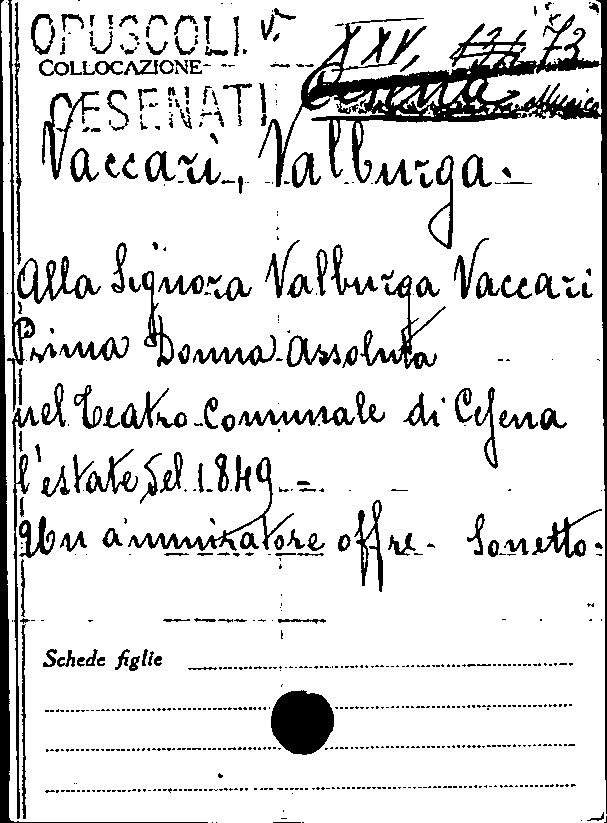 OPUSCOLI V. XXV, 73
COLLOCAZIONE
CESENATI Cesena Musica
Vaccari, Valburga.
Alla Signora Valburga Vaccari
Prima Donna Assoluta
nel Teatro Comunale di Cesena
l'estate del 1849 -
Un ammiratore offre. Sonetto.
Schede figlie